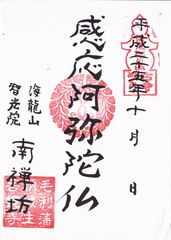 平成二十五年十月 日
感応阿弥陀仏
海龍山
智光院
南禅坊
毛利藩